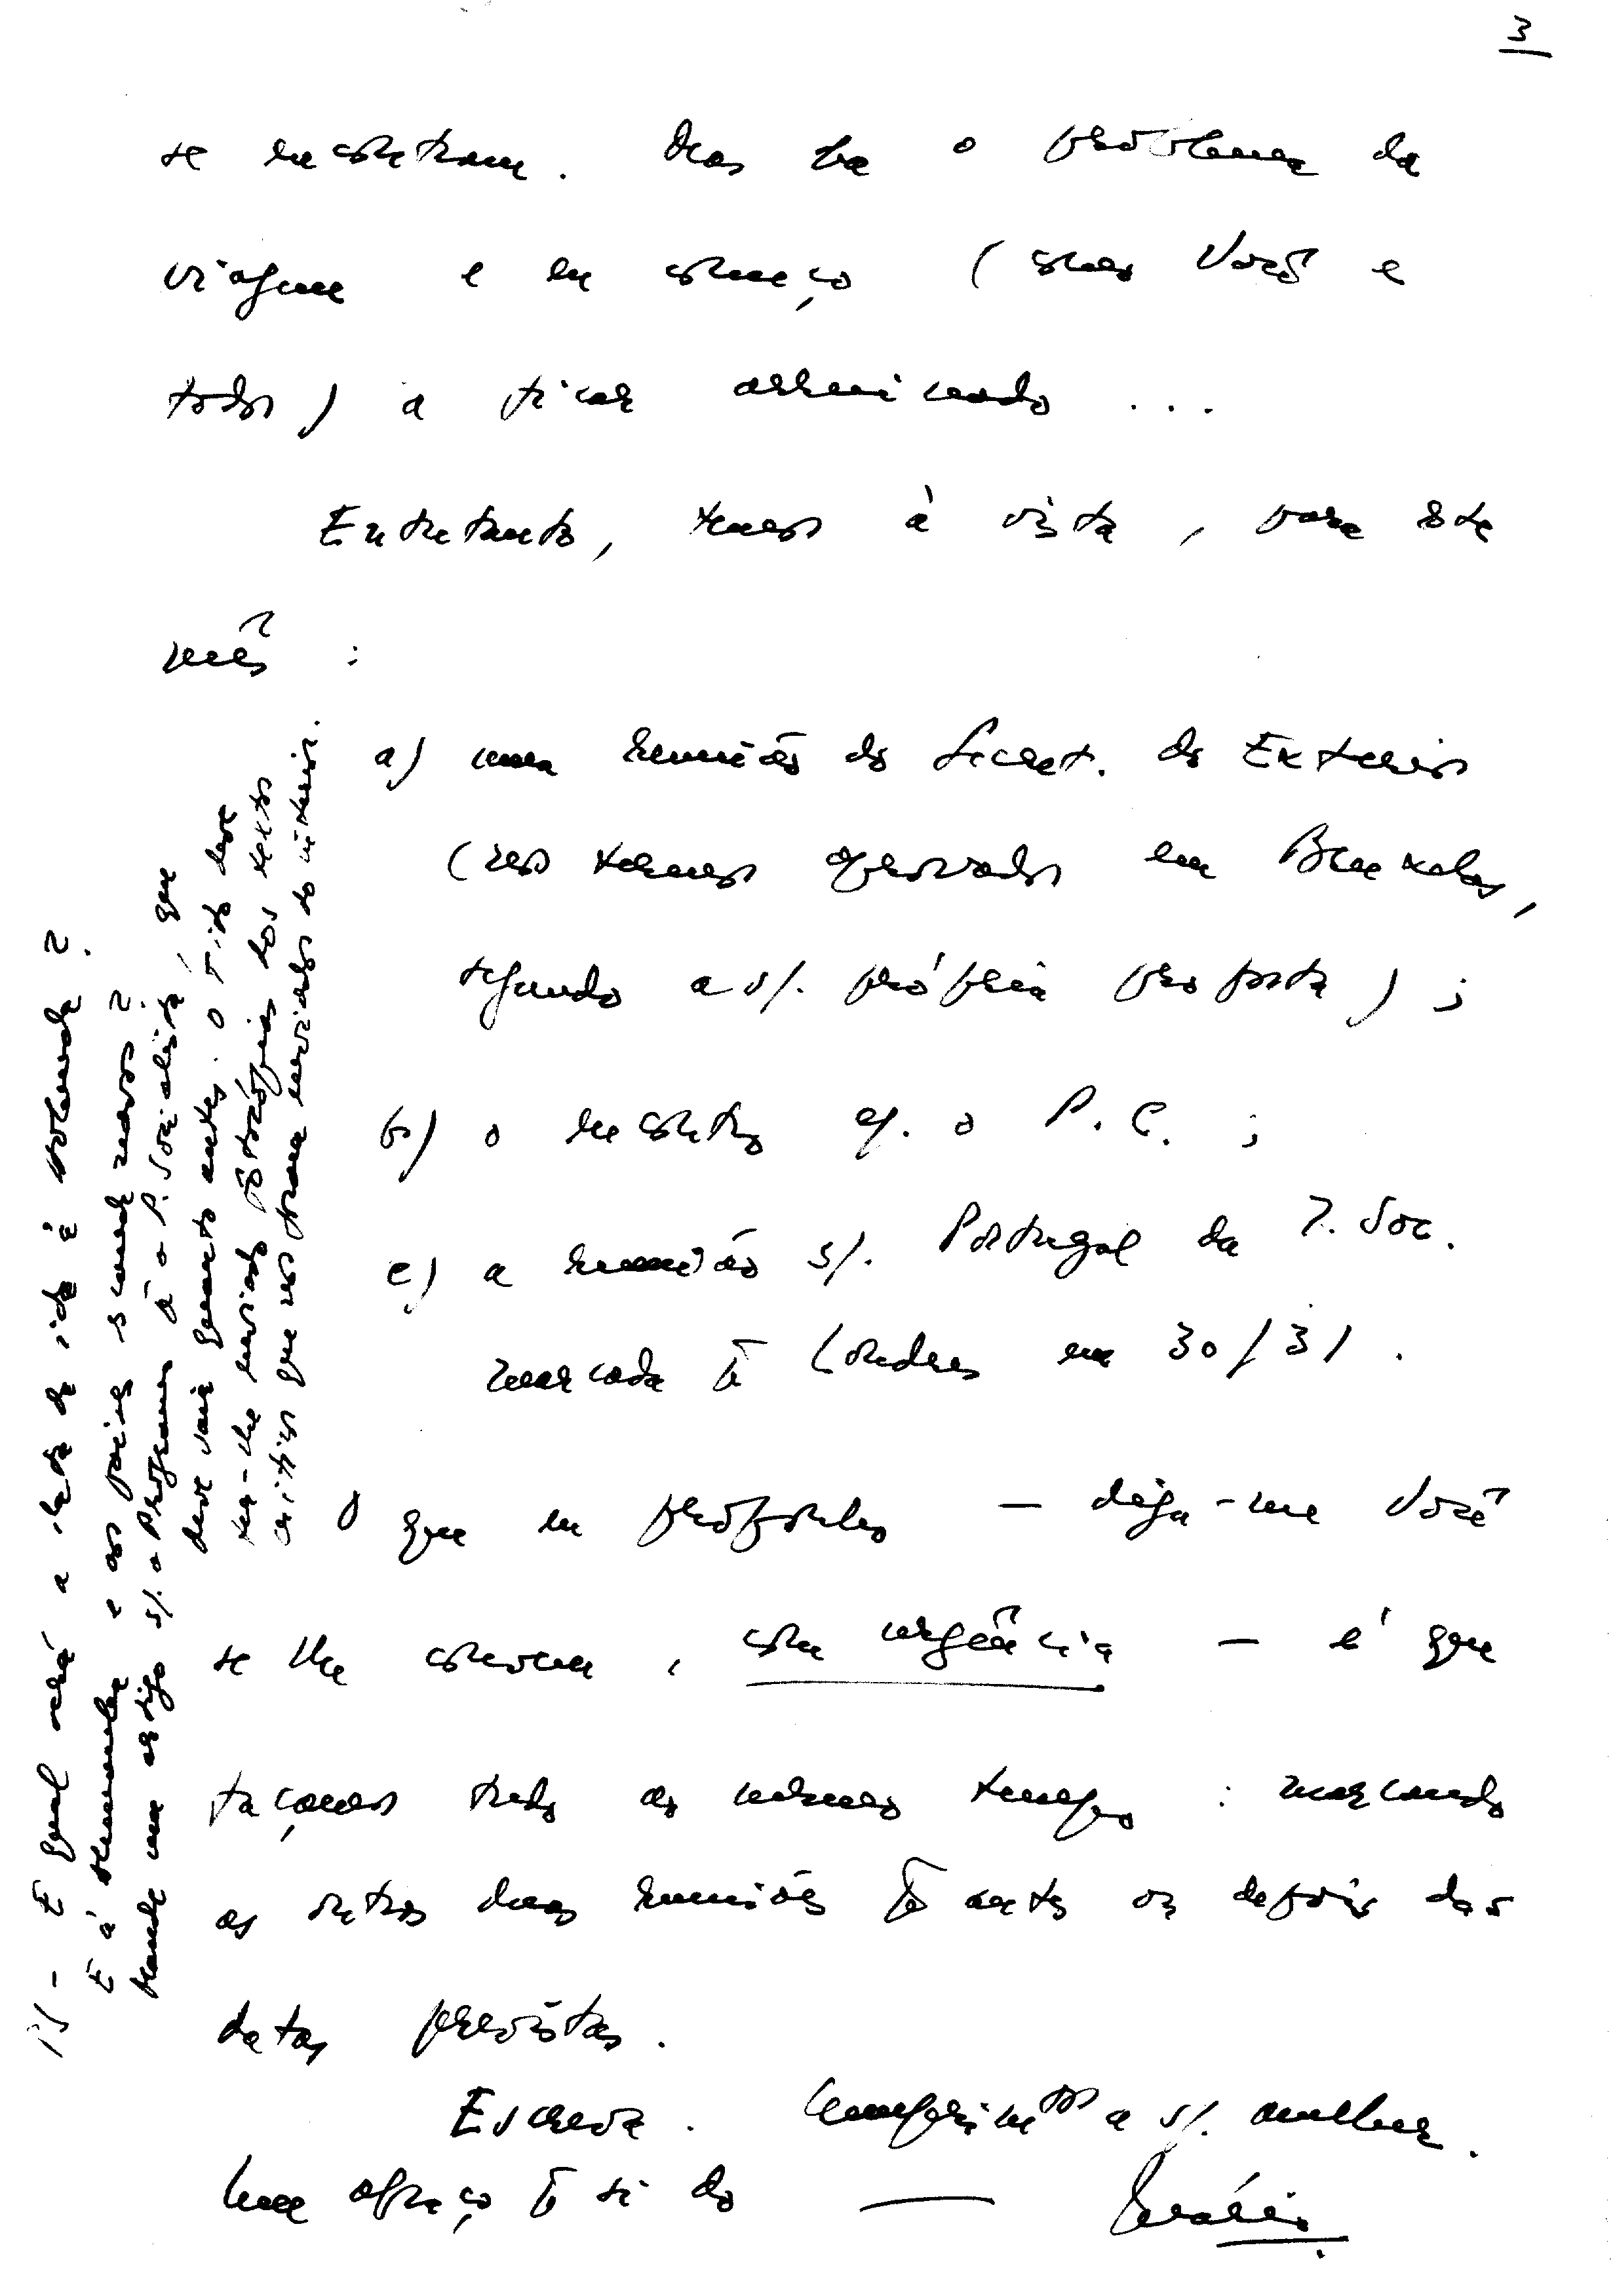 3
se encontram. Mas há o problema da
viagem e eu começo (como Você e
todos) a ficar arruinado ...
Entretanto, temos à vista, para este
mês :
a) uma reunião do Secret. do Exterior
(nos termos aprovados em Bruxelas,
segundo a s/. própria proposta) ;
b) o encontro c/. o P.C. ;
c) a reunião s/. Portugal da I. Soc.
marcada p̄ Londres em 30/31.
O que eu proponho — diga-me Você
se lhe convem, com urgência — é que
façamos tudo ao mesmo tempo : marcando
as outras duas reuniões p̄ antes ou depois das
datas previstas.
Escreva. Cumprimtos a s/. mulher.
Um abraço p̄ si do — Mário.
PS - E qual será a data da ida à Holanda ?
E à Alemanha e aos países escandinavos ?
Mande um artigo s/. o Programa p̄ o P. Socialista, que
deve sair quanto antes. O Tito deve
ter-lhe enviado fotocópias dos textos
críticos que nos foram enviados do interior.